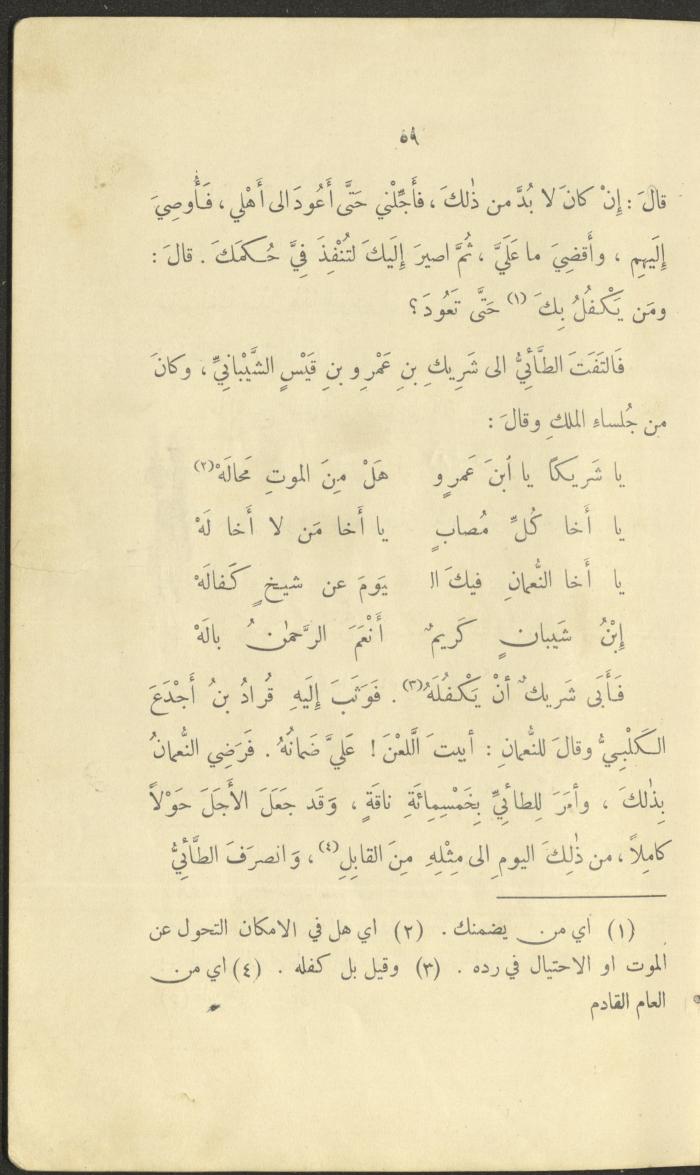 ٥٩
قالَ : إِنْ كانَ لا بُدَّ من ذٰلكَ ، فأَجِّلْني حَتَّى أَعُودَ الى أَهْلي ، فَأُوصِيَ
إِلَيهِم ، وأَقضِيَ ما عَلَيَّ ، ثُمَّ اصيرَ إِلَيكَ لتُنْفِذَ فِيَّ حُكمَكَ . قالَ :
ومَن يَكْفُلُ بِكَ (١) حَتَّى تَعُودَ ؟
فَالتَفَتَ الطَّائِيُّ الى شَرِيكِ بنِ عَمْرٍو بنِ قَيْسٍ الشَّيْبانِيِّ ، وكانَ
من جُلساءِ الملكِ وقالَ :
يا شَريكًا يا ٱبنَ عَمرٍو هَلْ مِنَ الموتِ مَحالَهْ (٢)
يا أَخا كُلِّ مُصابٍ يا أَخا مَن لا أَخا لَهْ
يا أَخا النُّعمانِ فيكَ ال يَومَ عن شيخٍ كَفالَهْ
إِبْنُ شَيبانٍ كَريمٌ أَنْعَمَ الرَّحمٰنُ بالَهْ
فَأَبَى شَريكٌ أَنْ يَكْفُلَهُ (٣) . فَوَثَبَ إِلَيهِ قُرادُ بنُ أَجْدَعَ
الكَلْبِيُّ وقالَ للنُّعمانِ : أبيتَ الَّلعْنَ ! عَلَيَّ ضَمانُهُ . فَرَضِي النُّعمانُ
بِذٰلكَ ، وأمَرَ لِلطائِيِّ بِخَمْسِمِائَةِ ناقَةٍ ، وَقَد جَعَلَ الأَجَلَ حَوْلاً
كامِلاً ، من ذٰلِكَ اليومِ الى مِثْلِهِ مِنَ القابِلِ (٤) ، وَانصرَفَ الطَّائِيُّ
(١) اي من يضمنك . (٢) اي هل في الامكان التحول عن
الموت او الاحتيال في رده . (٣) وقيل بل كفله . (٤) اي من
العام القادم